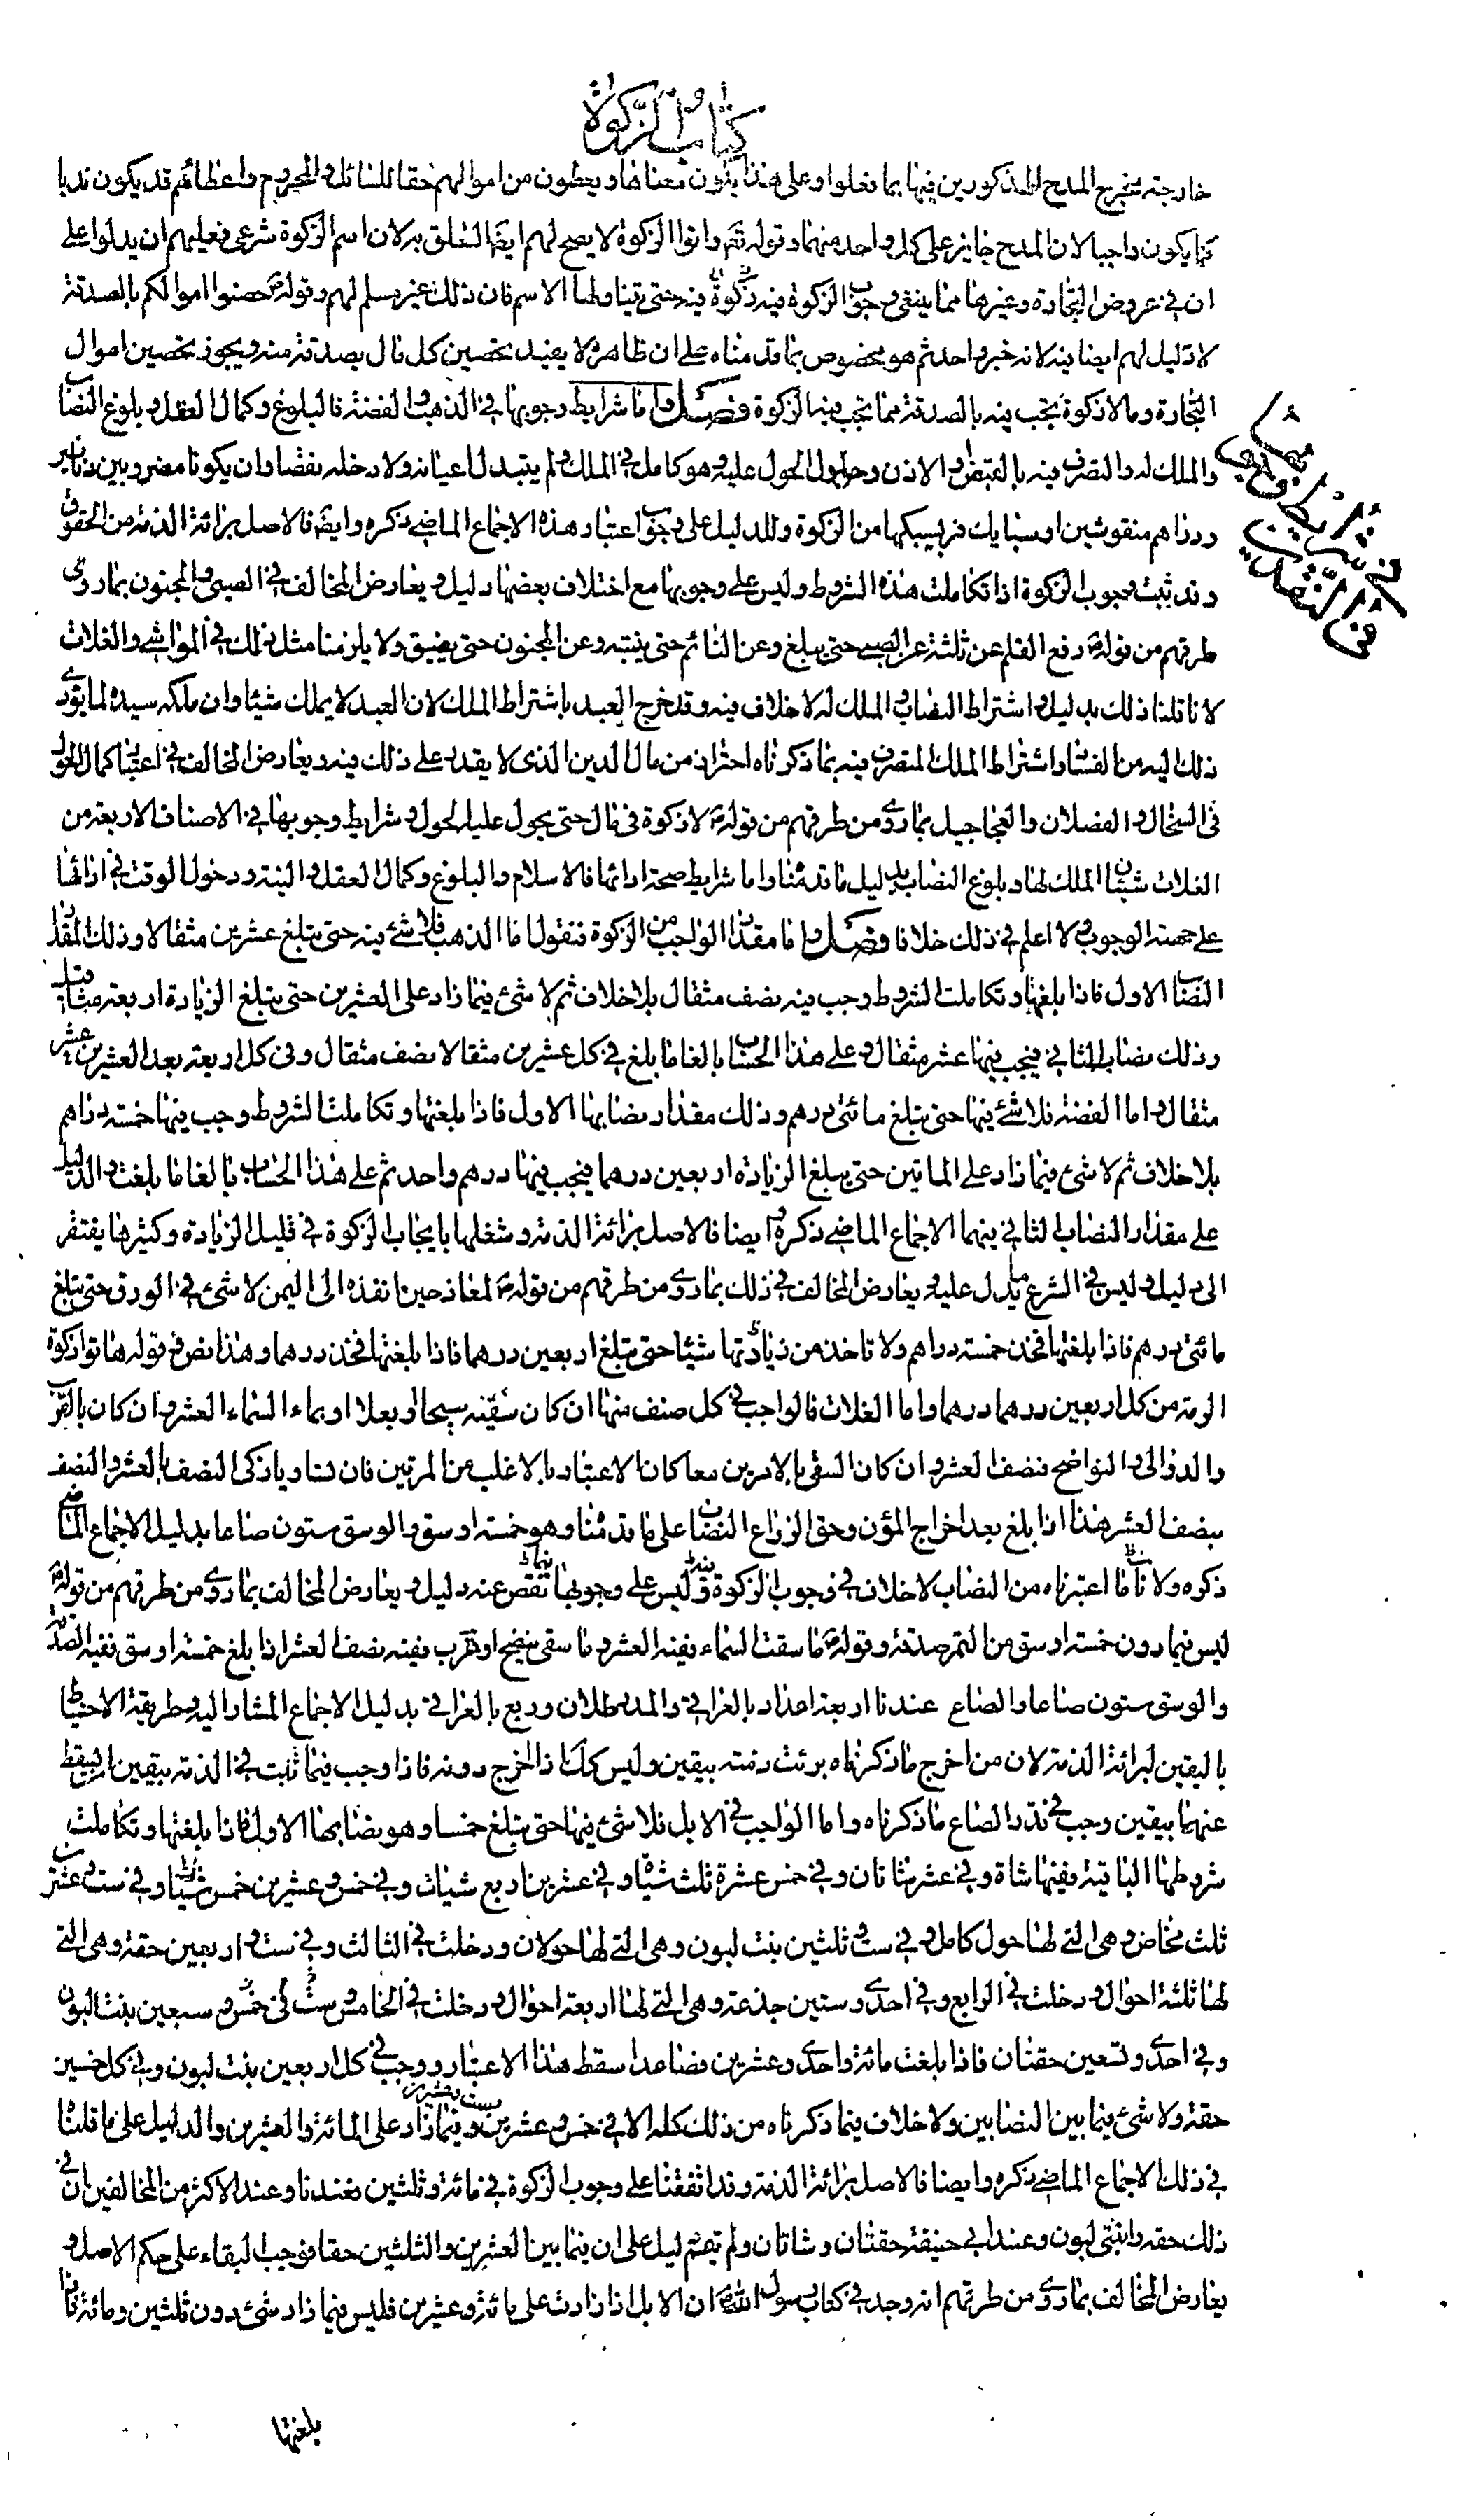 كتاب الزكوة
خارجة مخرج المدح للمذكورين فيها بما فعلوا وعلى هذا يكون معناها ويعطون من اموالهم حقا للسائل والمحروم واعطائهم قد يكون ندبا
كما يكون واجبا لان المدح جايز على كل واحد منهما وقوله تعم واتوا الزكوة لا يصح لهم ايضا التعلق به لان اسم الزكوة شرعى فعليهم ان يدلوا على
ان في عروض التجارة وغيرها مما ينفى وجوب الزكوة فيه زكوة فيه حتى يتناولها الاسم فان ذلك غير مسلم لهم وقوله حصنوا اموالكم بالصدقة
لا دليل لهم ايضا فيه لانه خبر واحد ثم هو مخصوص بما قدمناه على ان ظاهره لا يفيد تحصين كل مال بصدقة منه ويجوز تحصين اموال
التجارة وما لا زكوة يجب فيه بالصدقة مما يجب فيه الزكوة فصل واما شرايط وجوبها في الذهب والفضة فالبلوغ وكمال العقل وبلوغ النصاب
والملك له والتصرف فيه بالقبض او الاذن وحؤول الحول عليه وهو كامل في الملك لم يتبدل اعيانه ولا دخله نقصا وان يكونا مضروبين دنانير
ودراهم منقوشين او سبايك فر بسبكها من الزكوة والدليل على وجوب اعتبار هذه الاجماع الماضى ذكره وايضا فالاصل برائة الذمة من الحقوق
وقد ثبت وجوب الزكوة اذا تكاملت هذه الشروط وليس على وجوبها مع اختلاف بعضها دليل ويعارض المخالف في الصبى والمجنون بما روى
طرقهم من قوله رفع القلم عن ثلثة عن الصبى حتى يبلغ وعن النائم حتى ينتبه وعن المجنون حتى يفيق ولا يلزمنا مثل ذلك في المواشى والغلات
لانا قلنا ذلك بدليل واشتراط النصاب والملك له لا خلاف فيه وقد خرج العبد باشتراط الملك لان العبد لا يملك شيئا وان ملكه سيده لما يؤدى
ذلك اليه من الفساد واشتراط الملك المتصرف فيه بما ذكرناه احتراز من مال الدين الذى لا يقدر على ذلك فيه ويعارض المخالف في اعتبار كمال الحول
في السخال والفصلان والعجاجيل بما روى من طرقهم من قوله لا زكوة في مال حتى يحول عليه الحول وشرايط وجوبها في الاصناف الاربعة من
الغلات شيئان الملك لها وبلوغ النصاب بدليل ما قدمنا واما شرايط صحة ادائها فالاسلام والبلوغ وكمال العقل والنية ودخول الوقت في ادائها
على جهة الوجوب ولا اعلم في ذلك خلافا فصل واما مقدار الواجب من الزكوة فنقول اما الذهب فلا شئ فيه حتى يبلغ عشرين مثقالا وذلك المقدار
النصاب الاول فاذا بلغها وتكاملت الشروط وجب فيه نصف مثقال بلا خلاف ثم لا شئ فيما زاد على العشرين حتى يبلغ الزيادة اربعة مثاقيل
وذلك نصاب الثاني فيجب فيها عشر مثقال وعلى هذا الحساب بالغا ما بلغ في كل عشرين مثقالا نصف مثقال وفى كل اربعة بعد العشرين عشر
مثقال واما الفضة فلا شئ فيها حتى يبلغ مائتى درهم وذلك مقدار نصابها الاول فاذا بلغتها وتكاملت الشروط وجب فيها خمسة دراهم
بلا خلاف ثم لا شئ فيما زاد على الماتين حتى يبلغ الزيادة اربعين درهما فيجب فيها درهم واحد ثم على هذا الحساب بالغا ما بلغت والدليل
على مقدار النصاب الثاني فيهما الاجماع الماضى ذكره وايضا فالاصل برائة الذمة وشغلها بايجاب الزكوة في قليل الزيادة وكثيرها يفتقر
الى دليل وليس في الشرع ما يدل عليه ويعارض المخالف في ذلك بما روى من طرقهم من قوله لمعاذ حين انفذه الى اليمن لا شئ في الورق حتى يبلغ
مائتى درهم فاذا بلغتها فخذ خمسة دراهم ولا تاخذ من زيادتها شيئا حتى يبلغ اربعين درهما فاذا بلغتها فخذ درهما وهذا نص في قوله هاتوا زكوة
الرقة من كل اربعين درهما درهما واما الغلات فالواجب في كل صنف منها ان كان سقيه سيحا او بعلا او بماء السماء العشر وان كان بالغرب
والدوالى والنواضح فنصف العشر وان كان السقى بالامرين معا كان الاعتبار بالاغلب من المرتين فان تساويا زكى النصف بالعشر والنصف
بنصف العشر هذا اذا بلغ بعد اخراج المؤن وحق الزراع النصاب على ما قدمنا وهو خمسة اوسق والوسق ستون صاعا بدليل الاجماع الماضى
ذكره ولان ما اعتبرناه من النصاب لا خلاف في وجوب الزكوة فيه وليس على وجوبها فيما نقص عنه دليل ويعارض المخالف بما روى من طرقهم من قوله
ليس فيما دون خمسة اوسق من التمر صدقة وقوله ما سقت السماء ففيه العشر وما سقى بنضح او غرب ففيه نصف العشر اذا بلغ خمسة اوسق ففيه الصدقة
والوسق ستون صاعا والصاع عندنا اربعة امداد بالعراقى والمد رطلان وربع بالعراقى بدليل الاجماع المشار اليه وطريقة الاحتياط
باليقين لبرائة الذمة لان من اخرج ما ذكرناه برئت ذمته بيقين وليس كك اذا اخرج دونه فاذا وجب فيما ثبت في الذمة بيقين ان يسقط
عنها بيقين وجب في قدر الصاع ما ذكرناه واما الواجب في الابل فلا شئ فيها حتى يبلغ خمسا وهو نصابها الاول فاذا بلغتها وتكاملت
شروطها الباقية ففيها شاة وفي عشر شاتان وفي خمس عشرة ثلث شياه وفي عشرين اربع شيات وفي خمس وعشرين خمس شياه وفي ست وعشرين
ثلث مخاض وهى التى لها حول كامل وفي ست وثلثين بنت لبون وهى التى لها حولان ودخلت في الثالث وفي ست واربعين حقة وهى التى
لها ثلثة احوال ودخلت في الرابع وفي احدى وستين جذعة وهى التى لها اربعة احوال ودخلت في الخامس وفي ست وسبعين بنتا لبون
وفي احدى وتسعين حقتان فاذا بلغت مائة واحدى وعشرين فصاعدا سقط هذا الاعتبار ووجب في كل اربعين بنت لبون وفي كل خمسين
حقة ولا شئ فيما بين النصابين ولا خلاف فيما ذكرناه من ذلك كله الا في خمس وعشرين وفيما زاد على المائة والعشرين والدليل على ما قلناه
في ذلك الاجماع الماضى ذكره وايضا فالاصل برائة الذمة وقد اتفقنا على وجوب الزكوة في مائة وثلثين فعندنا وعند الاكثر من المخالفين ان في
ذلك حقه وابنتى لبون وعند ابي حنيفة حقتان وشاتان ولم يقم دليل على ان فيما بين العشرين والثلثين حقا فوجب البقاء على حكم الاصل و
يعارض المخالف بما روى من طرقهم انه وجد في كتاب رسول الله ان الابل اذا زادت على مائة وعشرين فليس فيما زاد شئ دون ثلثين ومائة فاذا
بلغتها